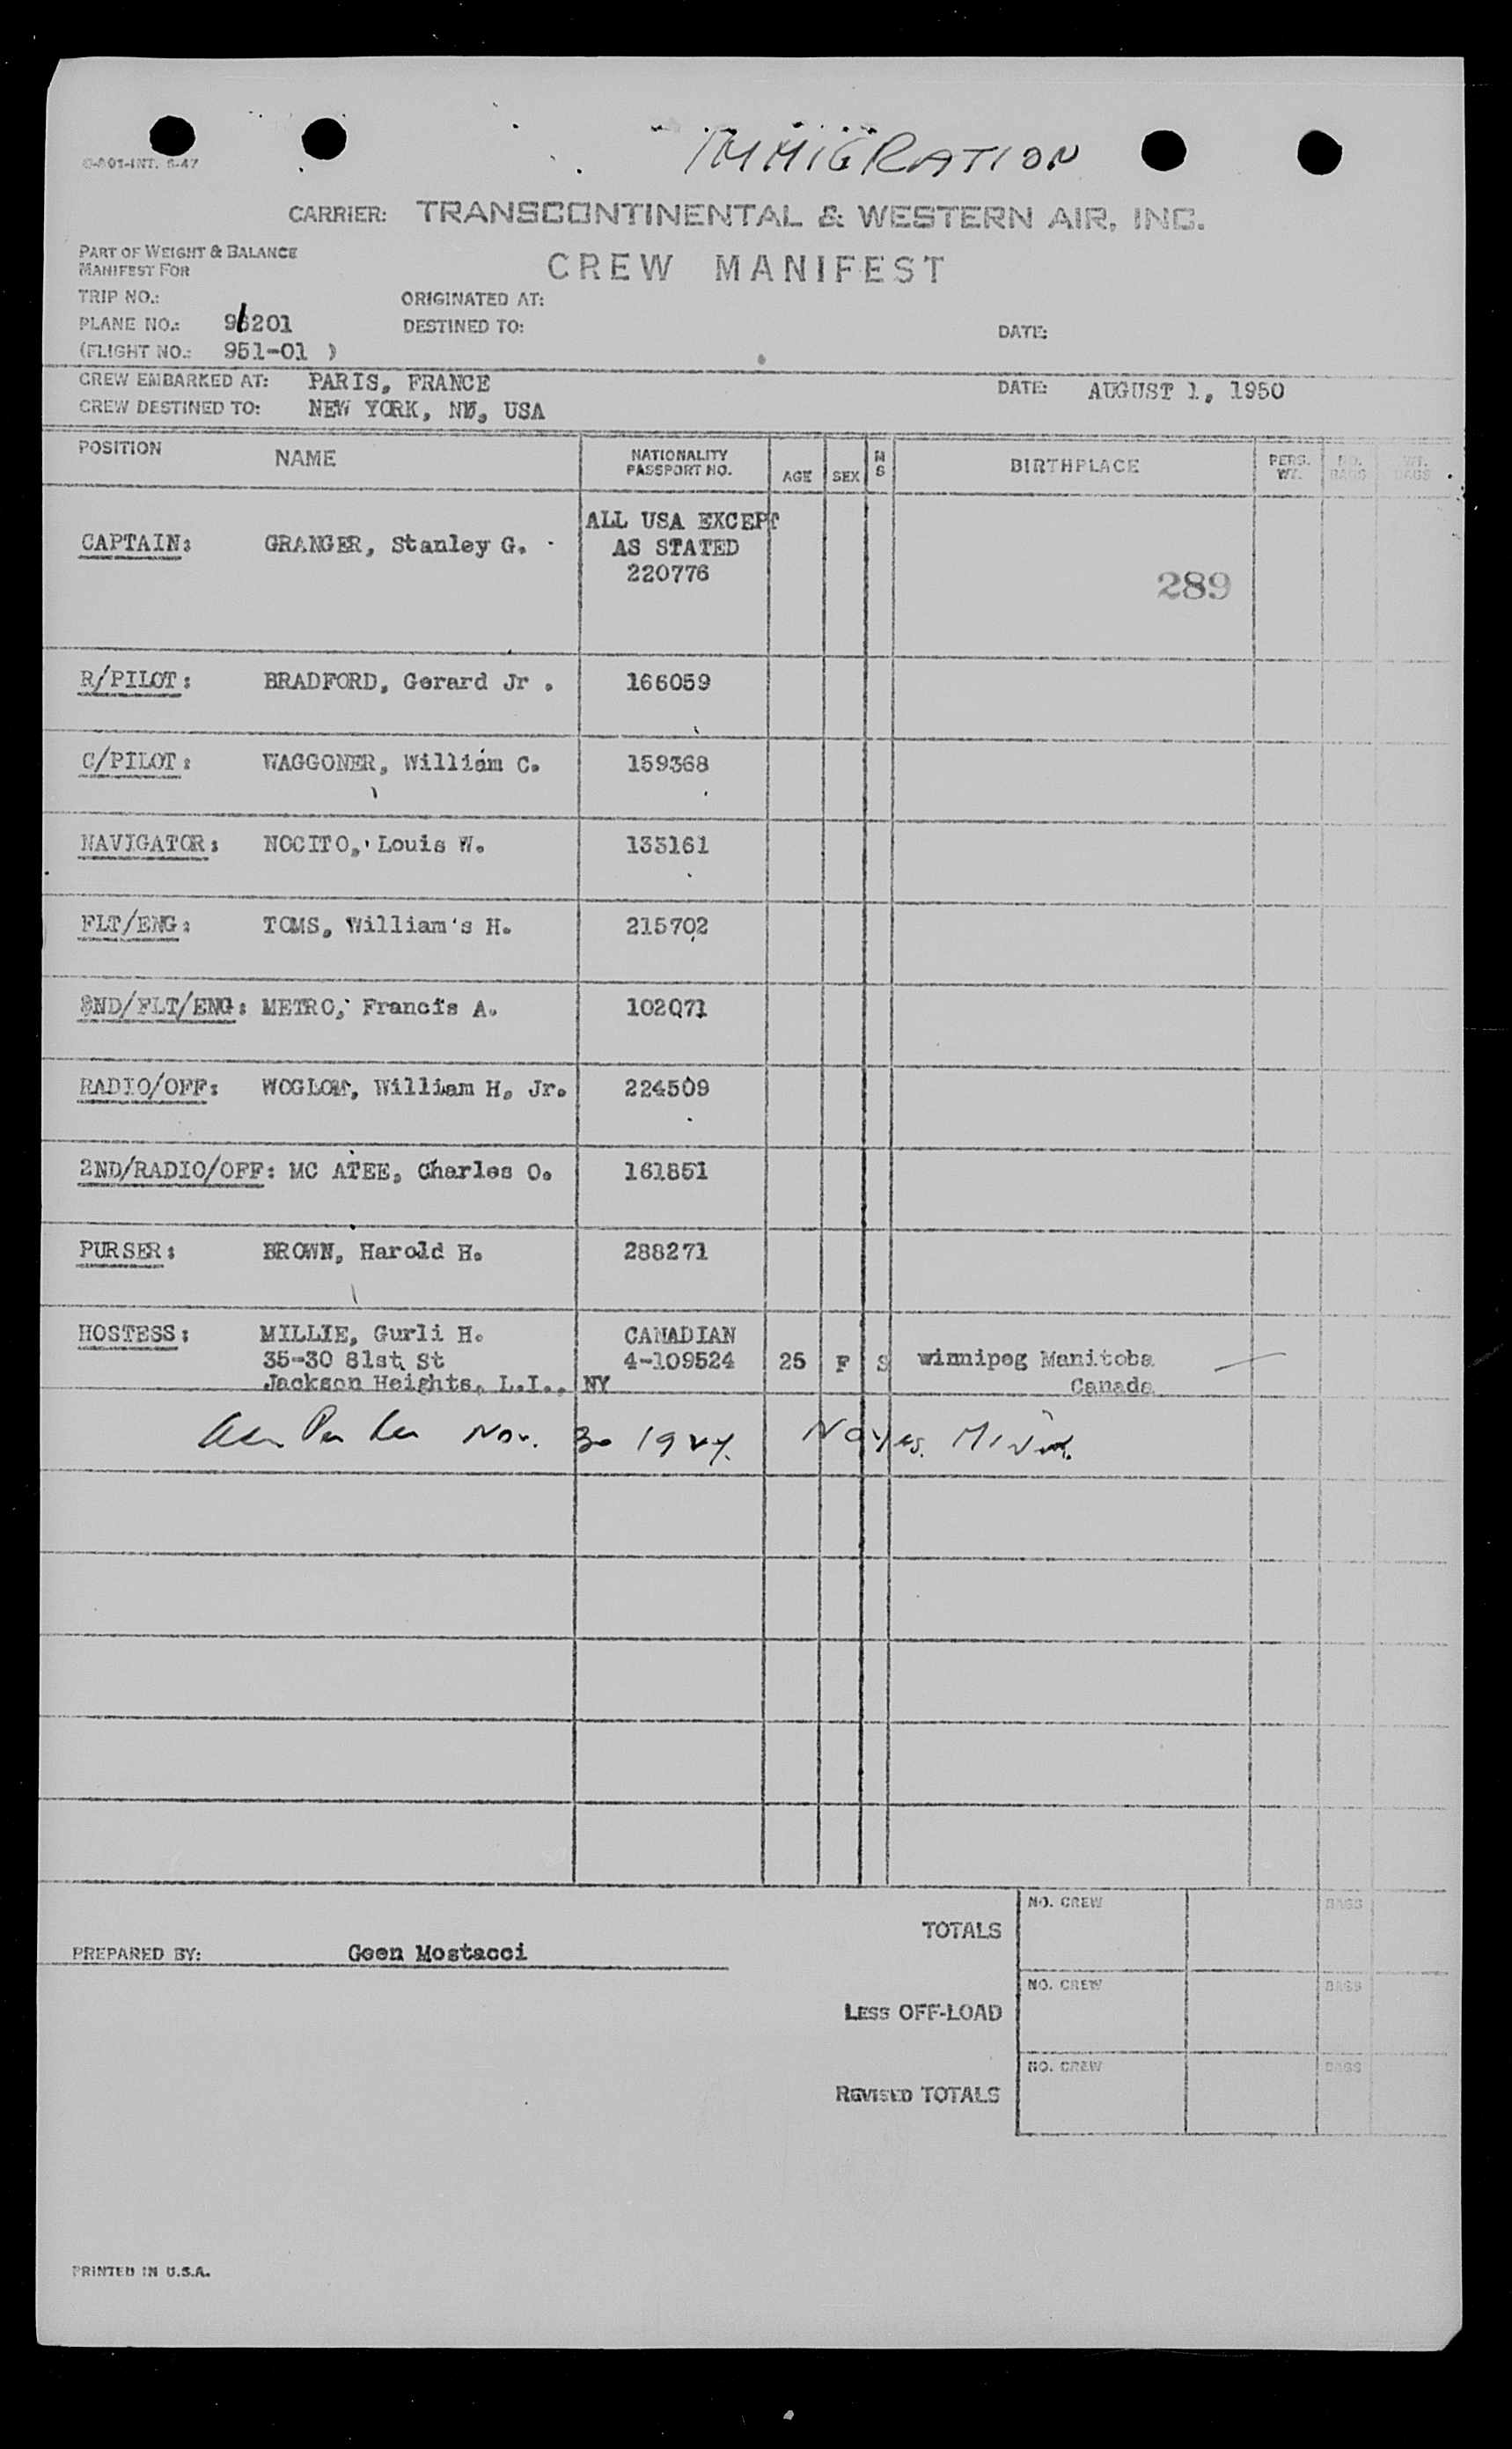 O-801-INT. 6-47
IMMIGRATION
CARRIER: TRANSCONTINENTAL & WESTERN AIR, INC.
PART OF WEIGHT & BALANCE
MANIFEST FOR
CREW MANIFEST
TRIP NO.: ORIGINATED AT:
PLANE NO.: 96201 DESTINED TO: DATE:
(FLIGHT NO.: 951-01 )
CREW EMBARKED AT: PARIS, FRANCE DATE: AUGUST 1, 1950
CREW DESTINED TO: NEW YORK, NY, USA
POSITION NAME NATIONALITY PASSPORT NO. AGE SEX M S BIRTHPLACE PERS. WT. NO. BAGS WT. BAGS
ALL USA EXCEPT
CAPTAIN: GRANGER, Stanley G. AS STATED
220776 289
R/PILOT: BRADFORD, Gerard Jr . 166059
C/PILOT: WAGGONER, William C. 159368
NAVIGATOR: NOCITO, Louis W. 133161
FLT/ENG: TOMS, William's H. 215702
2ND/FLT/ENG: METRO, Francis A. 102071
RADIO/OFF: WOGLOM, William H, Jr. 224509
2ND/RADIO/OFF: MC ATEE, Charles O. 161851
PURSER: BROWN, Harold H. 288271
HOSTESS: MILLIE, Gurli H. CANADIAN
35-30 81st St 4-109524 25 F S winnipeg Manitoba
Jackson Heights, L.I., NY Canada
Nov. 30 19 Noyes, Minn.
TOTALS NO. CREW BAGS
PREPARED BY: Geen Mostacci
LESS OFF-LOAD NO. CREW BAGS
REVISED TOTALS NO. CREW BAGS
PRINTED IN U.S.A.